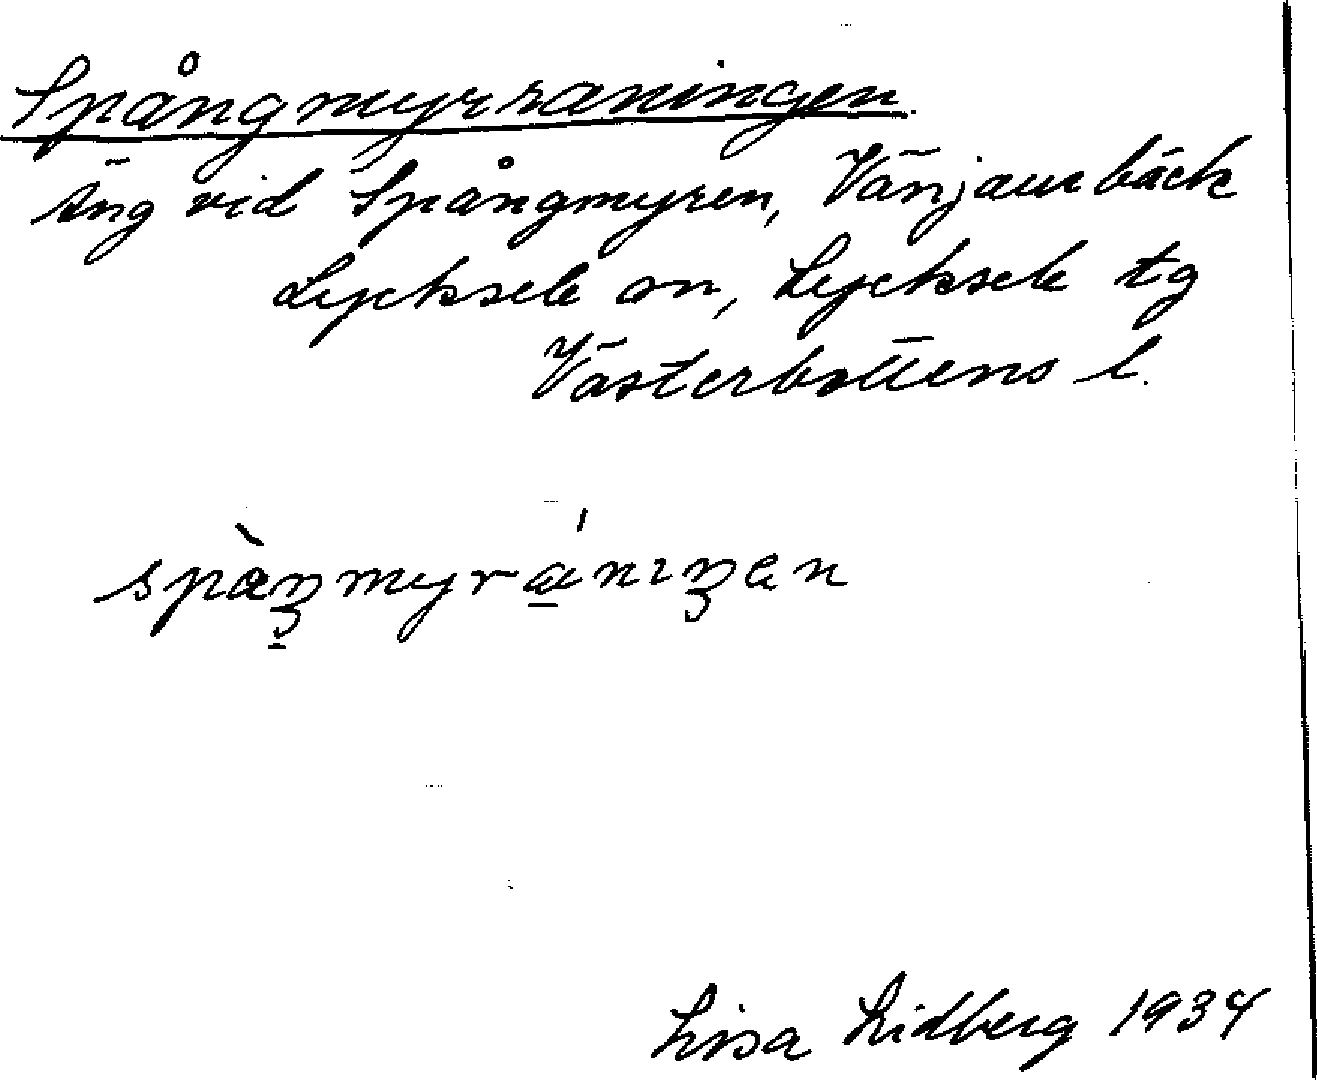 Spångmyrraningen.
Äng vid Spångmyren, Vänjaurbäck
Lycksele sn, Lycksele tg
Västerbottens l.
spàŋmyrániŋen
Lisa Lidberg 1934